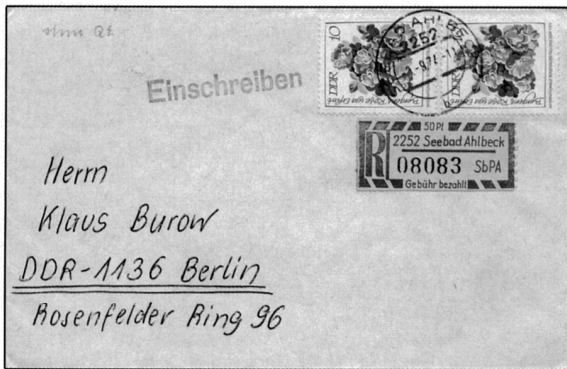 Einschreiben
DDR 10
2252
50 Pf
R 2252 Seebad Ahlbeck
08083 SbPA
Gebühr bezahlt
Herrn
Klaus Burow
DDR-1136 Berlin
Rosenfelder Ring 96